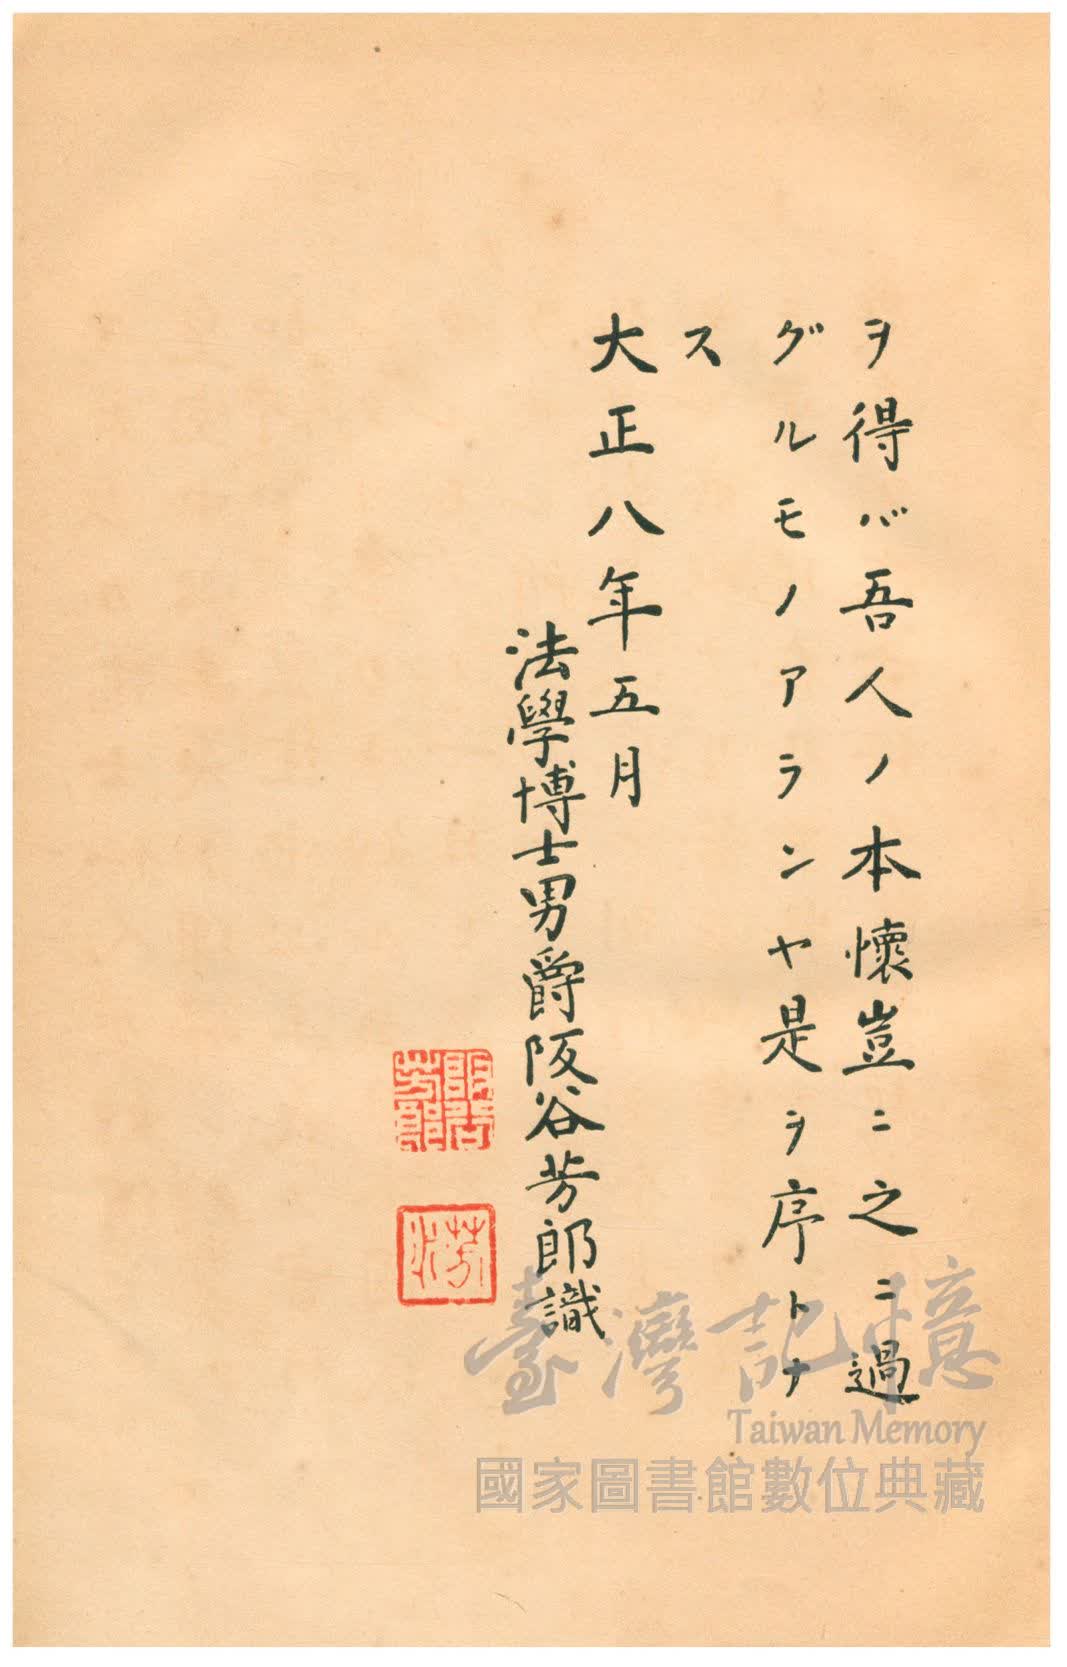 ヲ得バ吾人ノ本懷豈ニ之ニ過
グルモノアランヤ是ヲ序トナ
ス
大正八年五月
法學博士男爵阪谷芳郎識
阪谷芳郎
臺灣記憶
Taiwan Memory
國家圖書館數位典藏